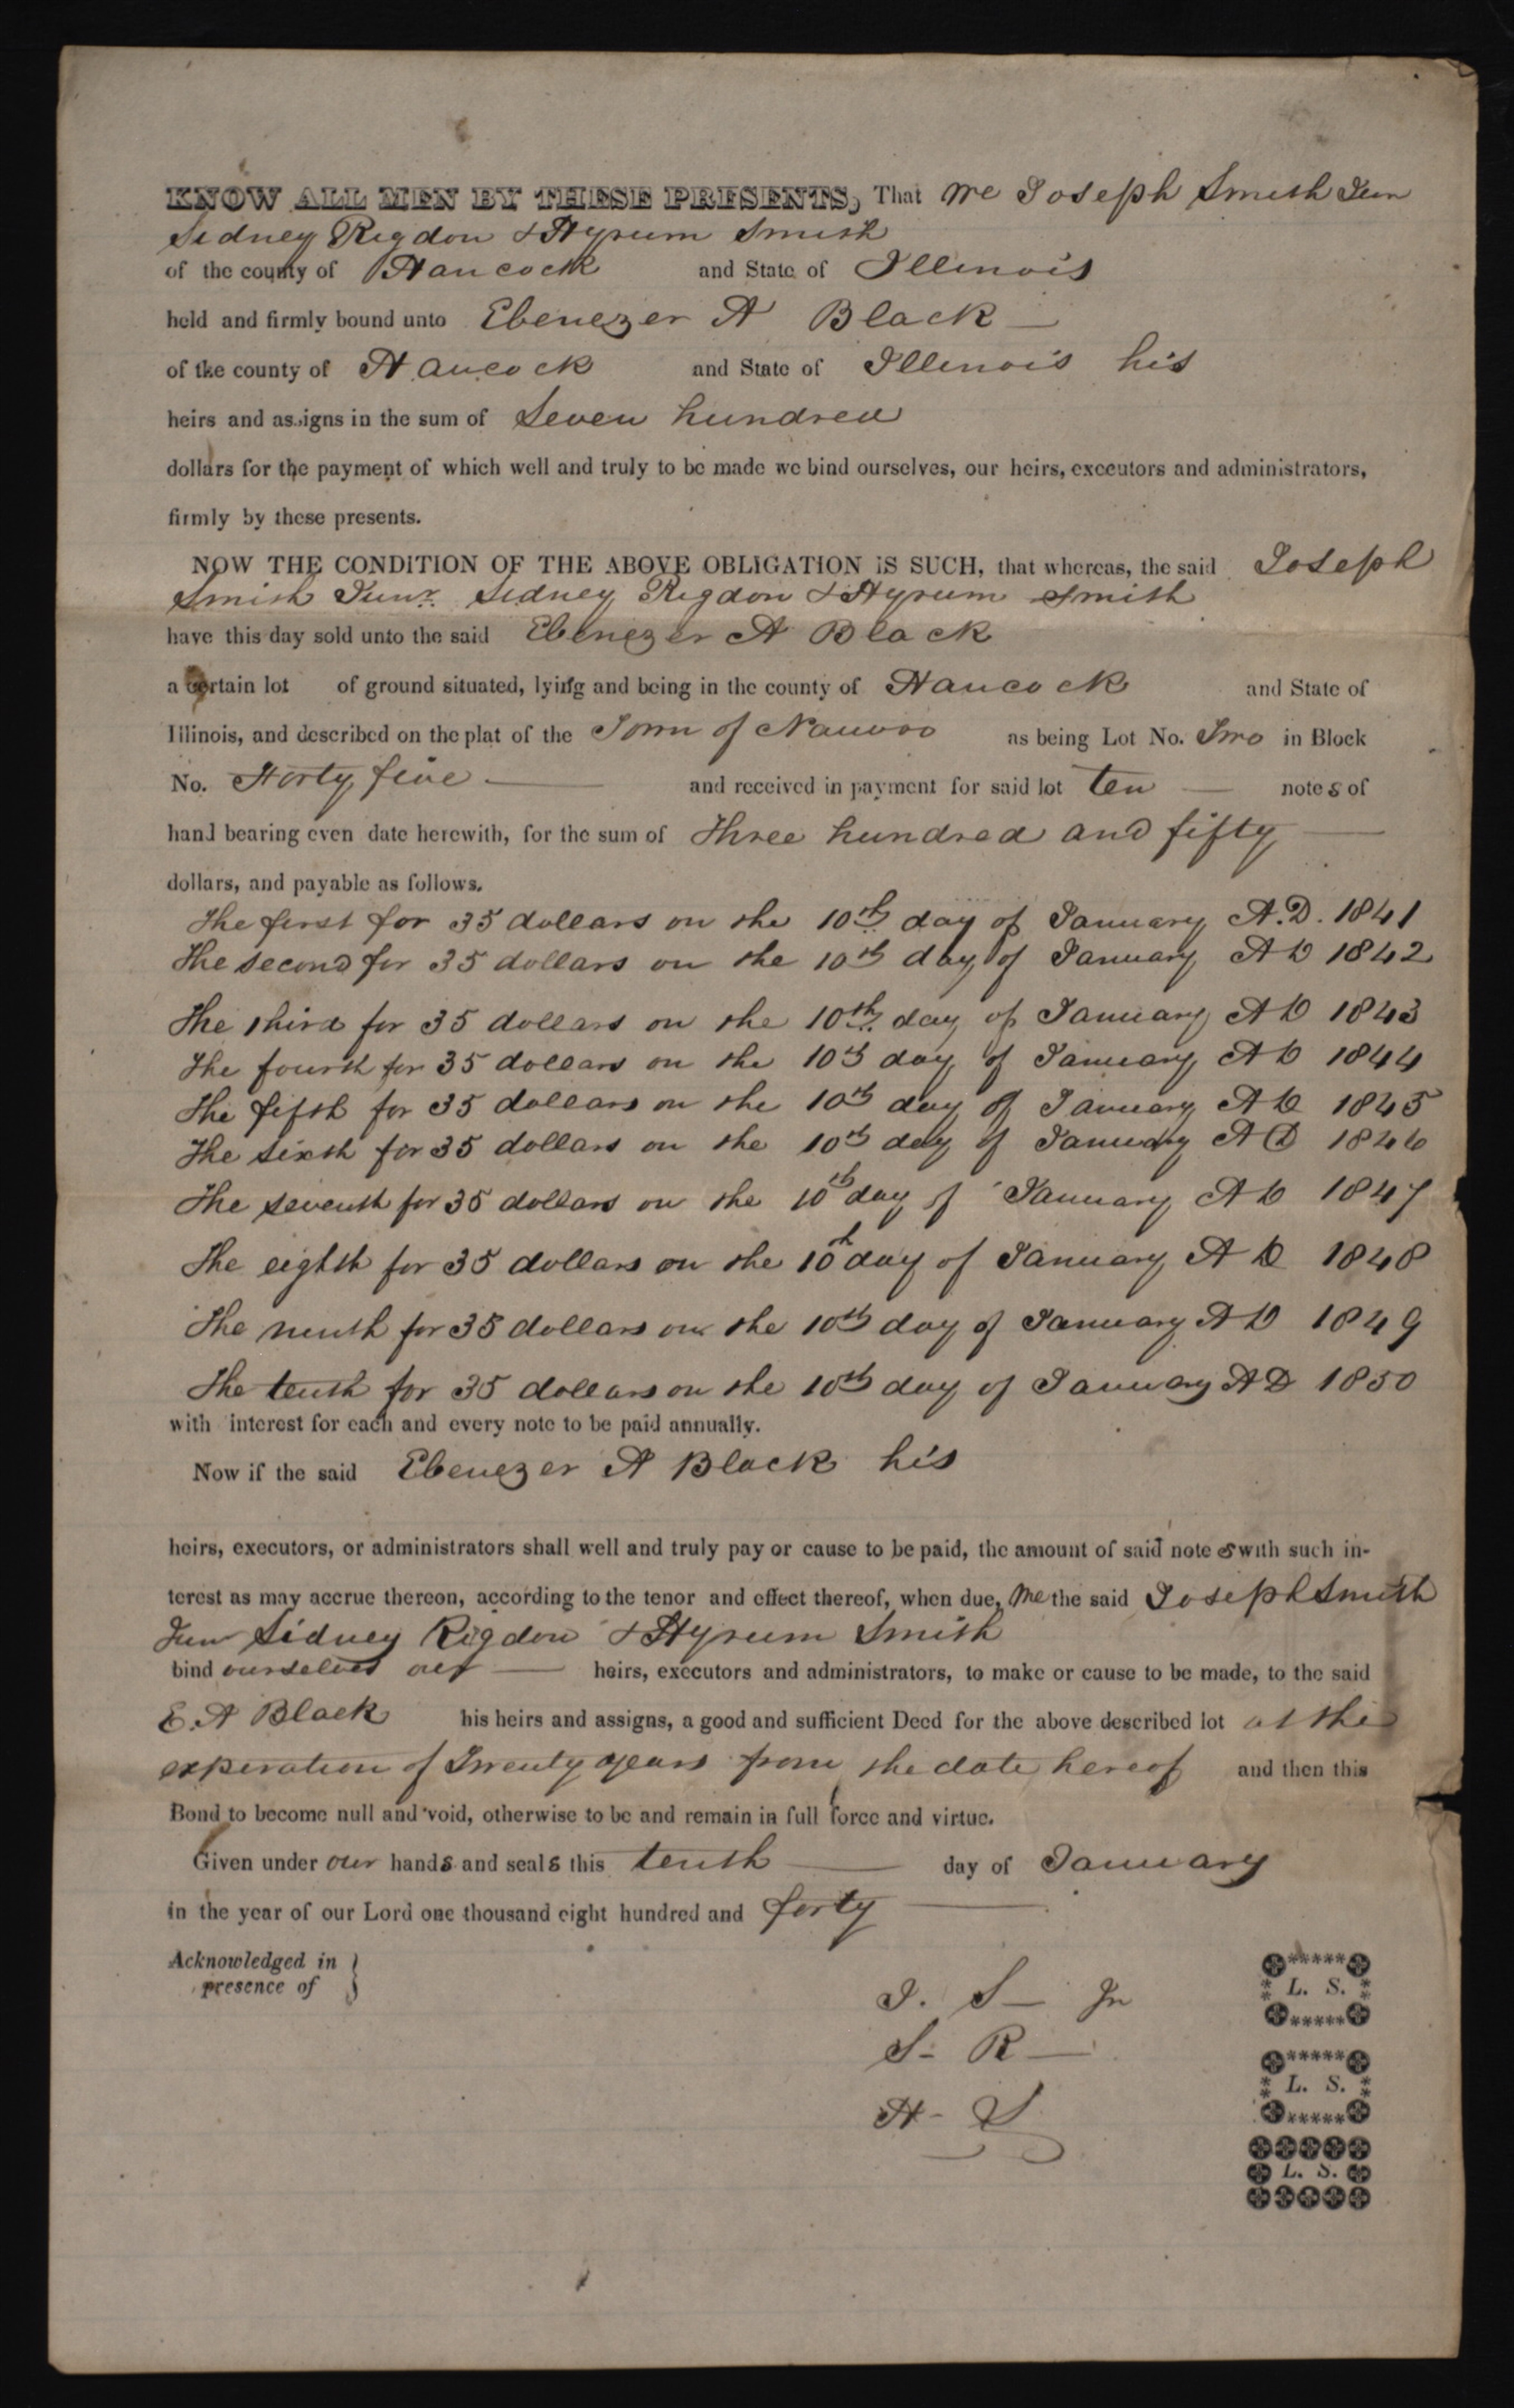 KNOW ALL MEN BY THESE PRESENTS, That We Joseph Smith Jun
Sidney Rigdon & Hyrum Smith
of the county of Hancock and State of Illinois
held and firmly bound unto Ebenezer A Black —
of the county of Hancock and State of Illinois his
heirs and assigns in the sum of Seven hundred
dollars for the payment of which well and truly to be made we bind ourselves, our heirs, executors and administrators,
firmly by these presents.
NOW THE CONDITION OF THE ABOVE OBLIGATION IS SUCH, that whereas, the said Joseph
Smith Junr. Sidney Rigdon & Hyrum Smith
have this day sold unto the said Ebenezer A Black
a certain lot of ground situated, lying and being in the county of Hancock and State of
Illinois, and described on the plat of the Town of Nauvoo as being Lot No. Two in Block
No. Forty five — and received in payment for said lot ten — notes of
hand bearing even date herewith, for the sum of Three hundred and fifty —
dollars, and payable as follows.
The first for 35 dollars on the 10th day of January A.D. 1841
The second for 35 dollars on the 10th day of January AD 1842
The third for 35 dollars on the 10th day of January AD 1843
The fourth for 35 dollars on the 10th day of January AD 1844
The fifth for 35 dollars on the 10th day of January AD 1845
The sixth for 35 dollars on the 10th day of January AD 1846
The seventh for 35 dollars on the 10th day of January AD 1847
The eighth for 35 dollars on the 10th day of January AD 1848
The ninth for 35 dollars on the 10th day of January AD 1849
The tenth for 35 dollars on the 10th day of January AD 1850
with interest for each and every note to be paid annually.
Now if the said Ebenezer A Black his
heirs, executors, or administrators shall well and truly pay or cause to be paid, the amount of said notes with such in-
terest as may accrue thereon, according to the tenor and effect thereof, when due, We the said Joseph Smith
Jun Sidney Rigdon & Hyrum Smith
bind ourselves our — heirs, executors and administrators, to make or cause to be made, to the said
E. A Black his heirs and assigns, a good and sufficient Deed for the above described lot at the
experation of Twenty years from the date hereof and then this
Bond to become null and void, otherwise to be and remain in full force and virtue.
Given under our hands and seals this tenth — day of January
in the year of our Lord one thousand eight hundred and forty —
Acknowledged in
presence of
J. S— Jr
L. S.
S- R—
L. S.
H- S
L. S.